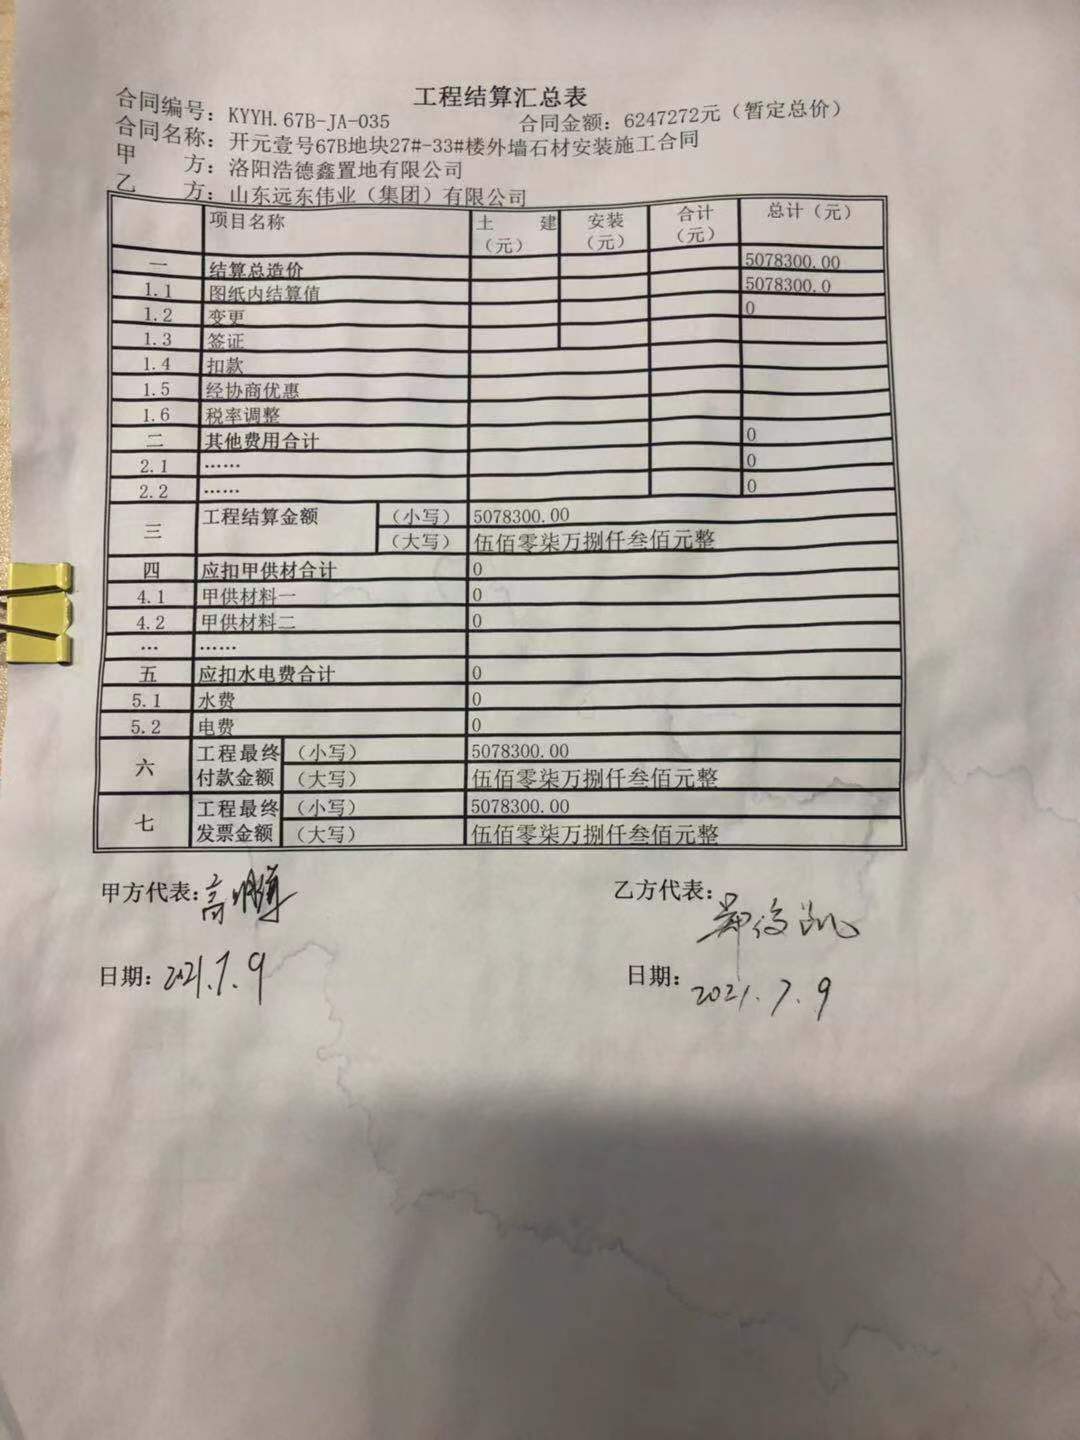 工程结算汇总表
合同编号：KYYH.67B-JA-035 合同金额：6247272元（暂定总价）
合同名称：开元壹号67B地块27#-33#楼外墙石材安装施工合同
甲 方：洛阳浩德鑫置地有限公司
乙 方：山东远东伟业（集团）有限公司
项目名称 土 建（元） 安装（元） 合计（元） 总计（元）
一 结算总造价 5078300.00
1.1 图纸内结算值 5078300.0
1.2 变更 0
1.3 签证
1.4 扣款
1.5 经协商优惠
1.6 税率调整
二 其他费用合计 0
2.1 …… 0
2.2 …… 0
三 工程结算金额 （小写） 5078300.00
（大写） 伍佰零柒万捌仟叁佰元整
四 应扣甲供材合计 0
4.1 甲供材料一 0
4.2 甲供材料二 0
… ……
五 应扣水电费合计 0
5.1 水费 0
5.2 电费 0
六 工程最终付款金额 （小写） 5078300.00
（大写） 伍佰零柒万捌仟叁佰元整
七 工程最终发票金额 （小写） 5078300.00
（大写） 伍佰零柒万捌仟叁佰元整
甲方代表： 乙方代表：郑俊凯
日期：2021.7.9 日期：2021.7.9